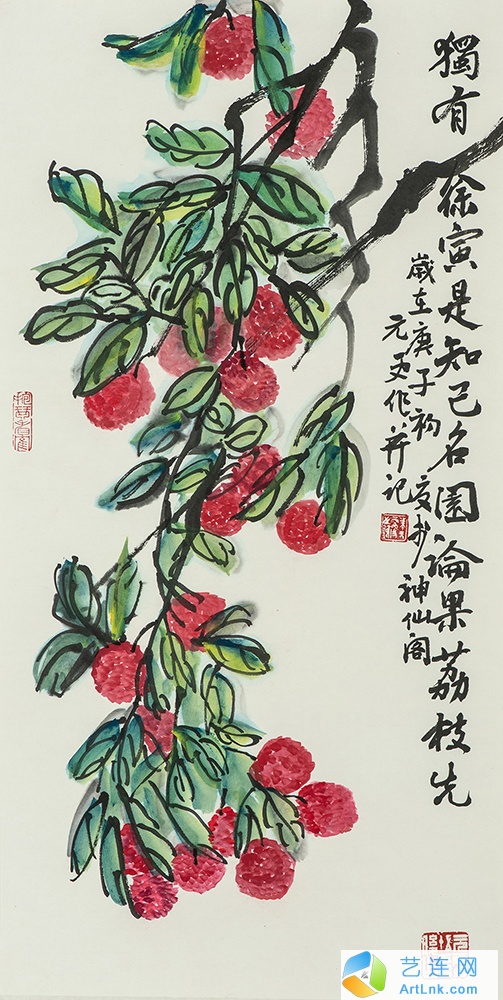 獨有徐寅是知己名園論果荔枝先
歲在庚子初夏於神仙阁
元作并记
艺连网
ArtLnk.com